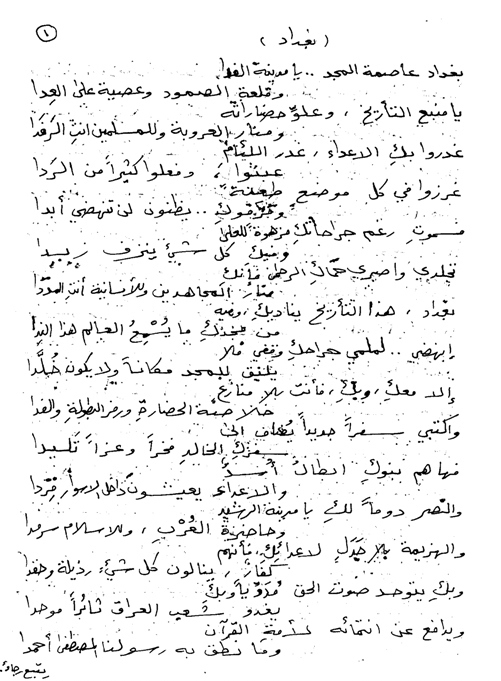 ١
( بغداد )
بغداد عاصمة المجد .. يا مدينة الفدا
وقلعة الصمود وعصية على العدا
يا منبع التأريخ ، وعلوّ حضاراته
ومنار العروبة وللمسلمين انتِ الرَفَدا
غدروا بكِ الاعداء ، غدر اللئام
عبثوا ، وفعلوا كثيراً من الرَدا
غرزوا في كل موضعٍ طعنة
ومزقوكِ .. يظنون لن تنهضي أبدا
فسموتِ رغم جراحاتكِ مزهوة للعلى
وفيك كل شيئ ينزف
تجلدي واصبري حماكِ الرحمن فأنك
منارُ المجاهدين وللأنسانية أنتِ المدَدا
بغداد ، هذا التأريخ يناديكِ
من مجدكِ ما يُسْمِعُ العالم هذا الندا
إنهضي .. لملمي جراحكِ وقفي
يليق للمجد مكاناً ولا يكون خُلَّدا
إلا معكِ ، وبكِ ، فأنت بلا منازع
خلاصة الحضارة ورمز البطولة والفدا
واكتبي سفراً جديداً يضاف الى
سفركِ الخالدِ فخراً وعزاً تليدا
فها هم بنوكِ ابطالٌ أُسدٌ
والاعداء يعيشون داخل الاسوار
والنصر دوماً لكِ يا مدينة الرشيد
وحاضرة العُرْبِ ، وللاسلام سرمدا
والهزيمة بلا جدلٍ لاعدائكِ ، فأنهم
كفارٌ ، ينالون كل شيء رذيلة وحقدا
وبكِ يتوحد صوت الحق مُدَوّياً وبكِ
يغدو شعب العراق ثائراً موحدا
ويدافع عن انتمائه لشرعة القرآن
وما نطق به رسولنا المصطفى أحمدا
يتبع رجاءً